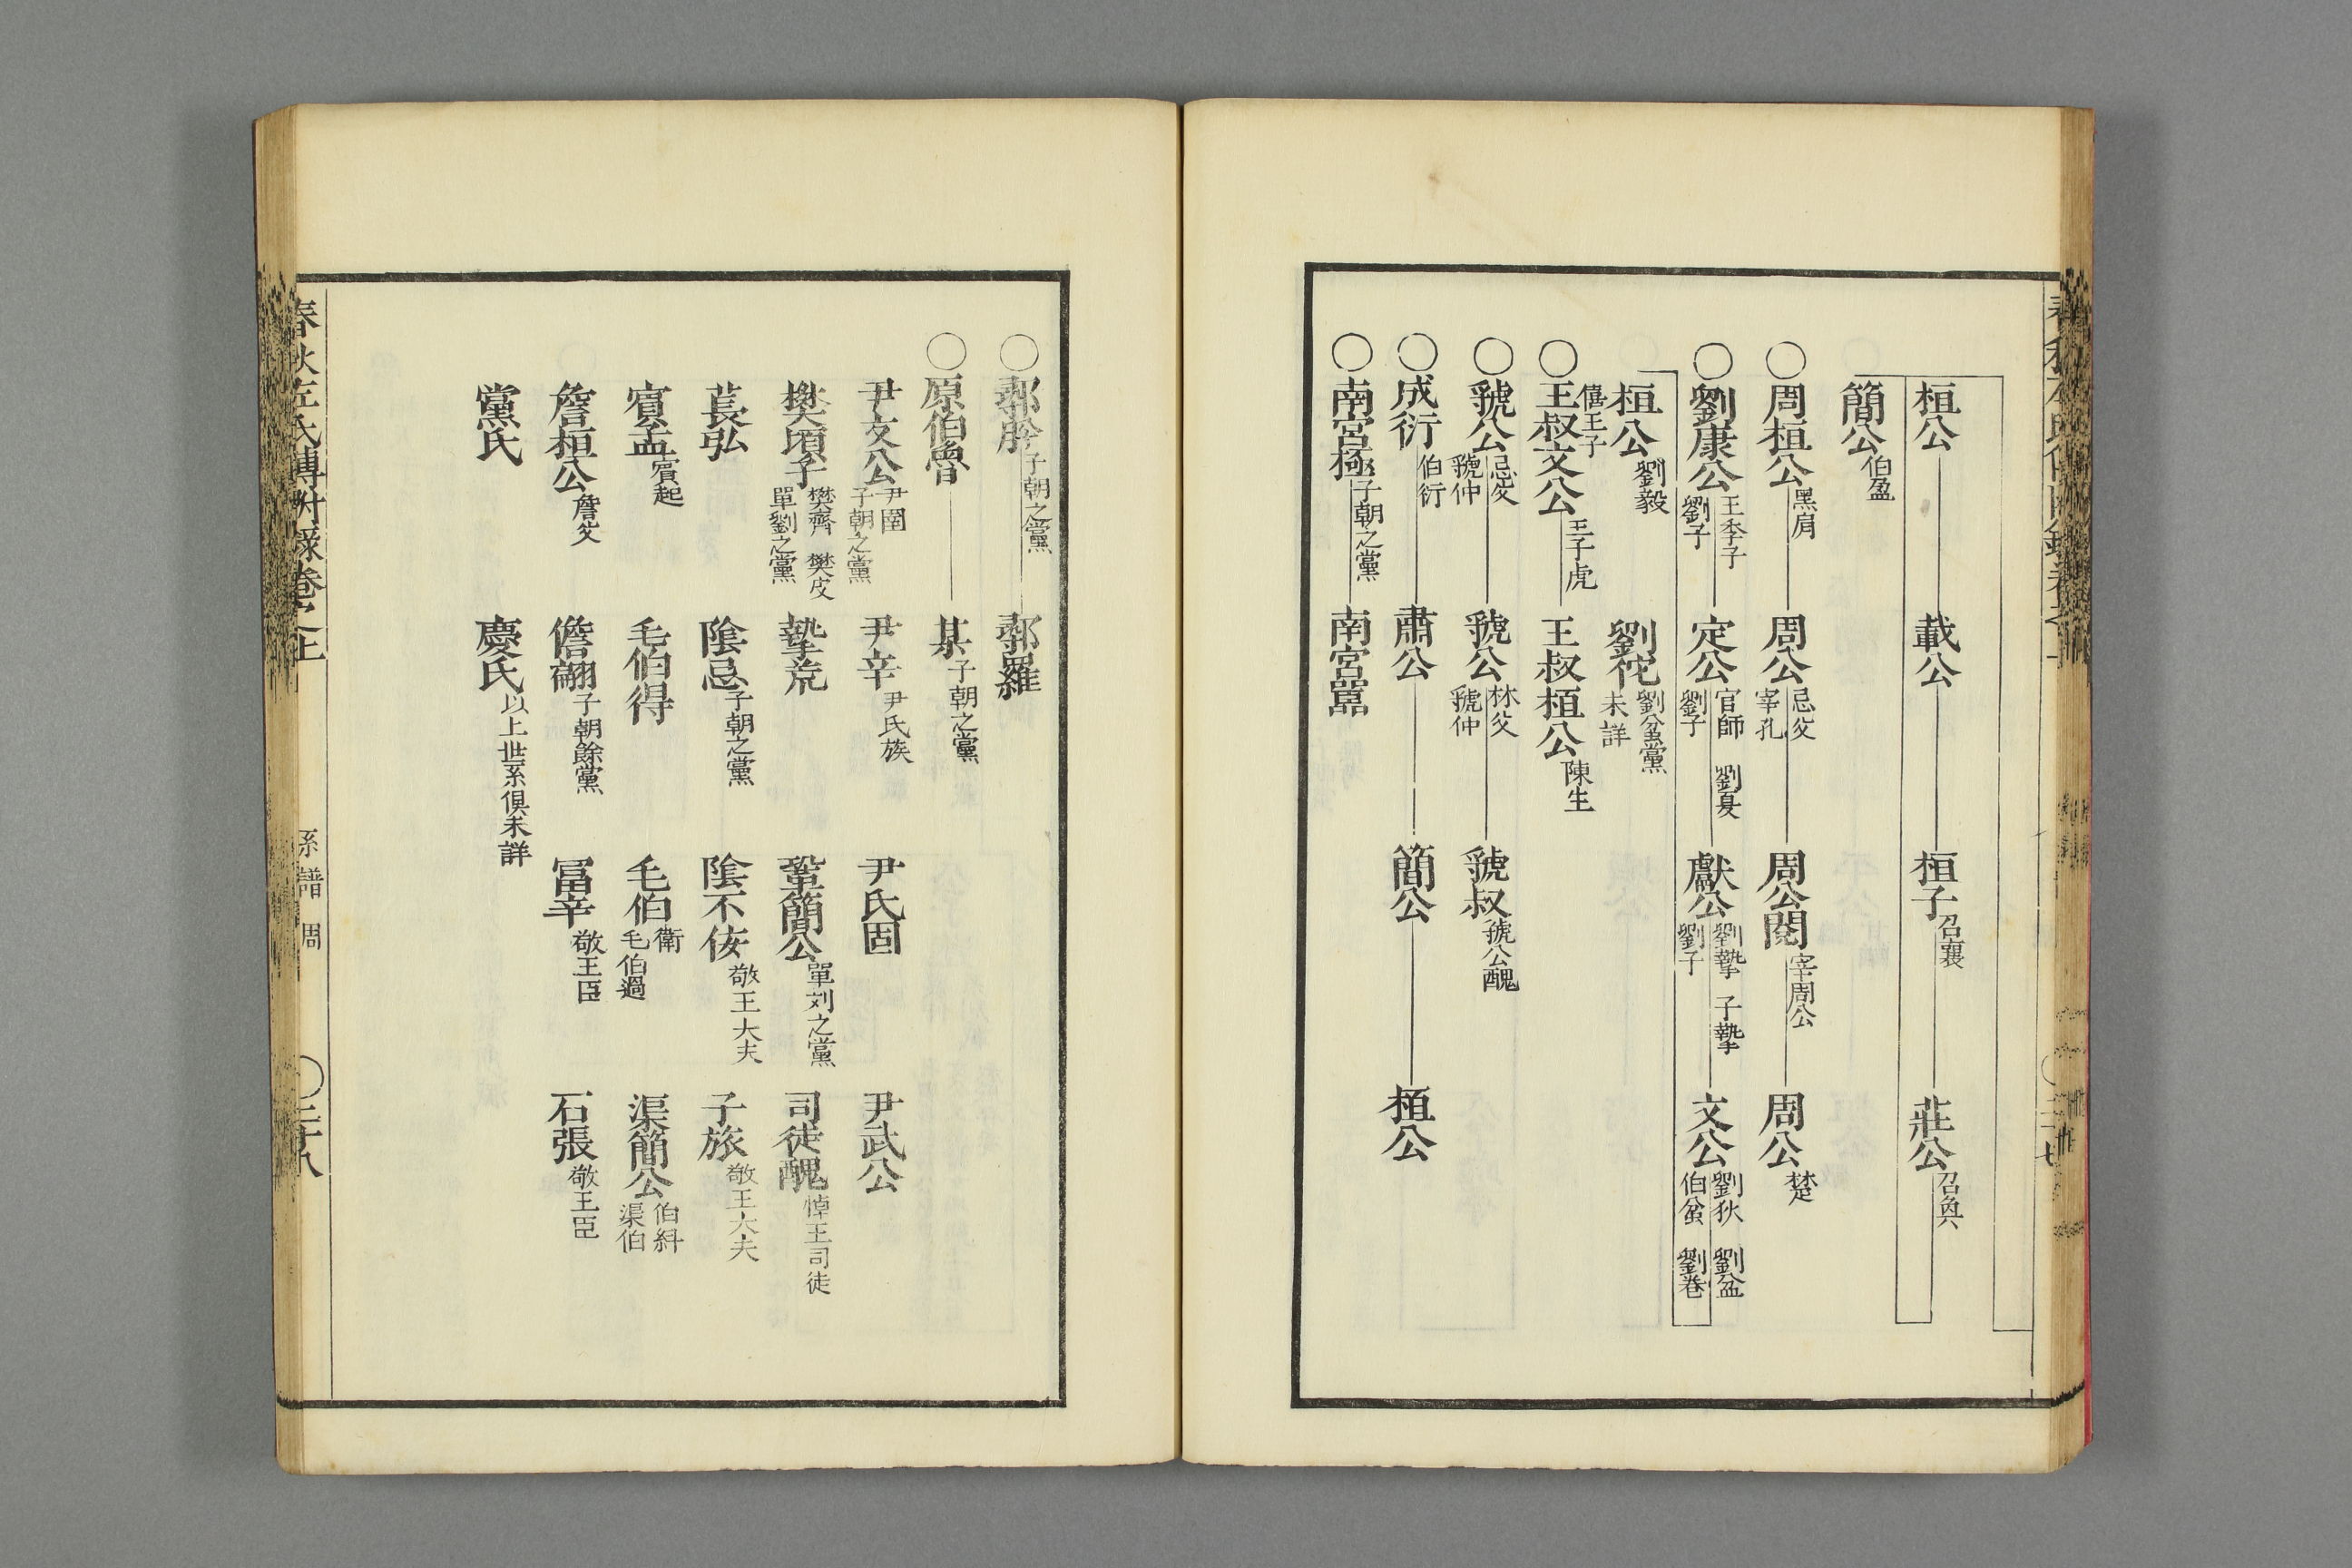 桓公 載公 桓子 召襄 莊公 召奐
簡公 伯盈
○周桓公 黑肩 周公 忌父 宰孔 周公閱 宰周公 周公 楚
○劉康公 王季子 劉子 定公 官師 劉子 劉夏 獻公 劉摯 劉子 子摯 文公 劉狄 伯蚠 劉盆 劉卷
桓公 劉毅 劉佗 劉蚠黨 未詳
僖王子
○王叔文公 王子虎 王叔桓公 陳生
○虢公 忌父 虢仲 虢公 林父 虢仲 虢叔 虢公醜
○成衍 伯衍 肅公 簡公 桓公
○南宮極 子朝之黨 南宮嚚
○鄩肸 子朝之黨 鄩羅
○原伯魯 某 子朝之黨
尹文公 尹圉 子朝之黨 尹辛 尹氏族 尹氏固 尹武公
樊頃子 樊齊 樊皮 單劉之黨 摯荒 鞏簡公 單刘之黨 司徒醜 悼王司徒
萇弘 陰忌 子朝之黨 陰不佞 敬王大夫 子旅 敬王大夫
賓孟 賓起 毛伯得 毛伯 衛 毛伯過 渠簡公 伯糾 渠伯
詹桓公 詹父 儋翩 子朝餘黨 冨辛 敬王臣 石張 敬王臣
黨氏 慶氏 以上世系俱未詳
春秋左氏傳附錄卷之上 系譜 周 ○二十八